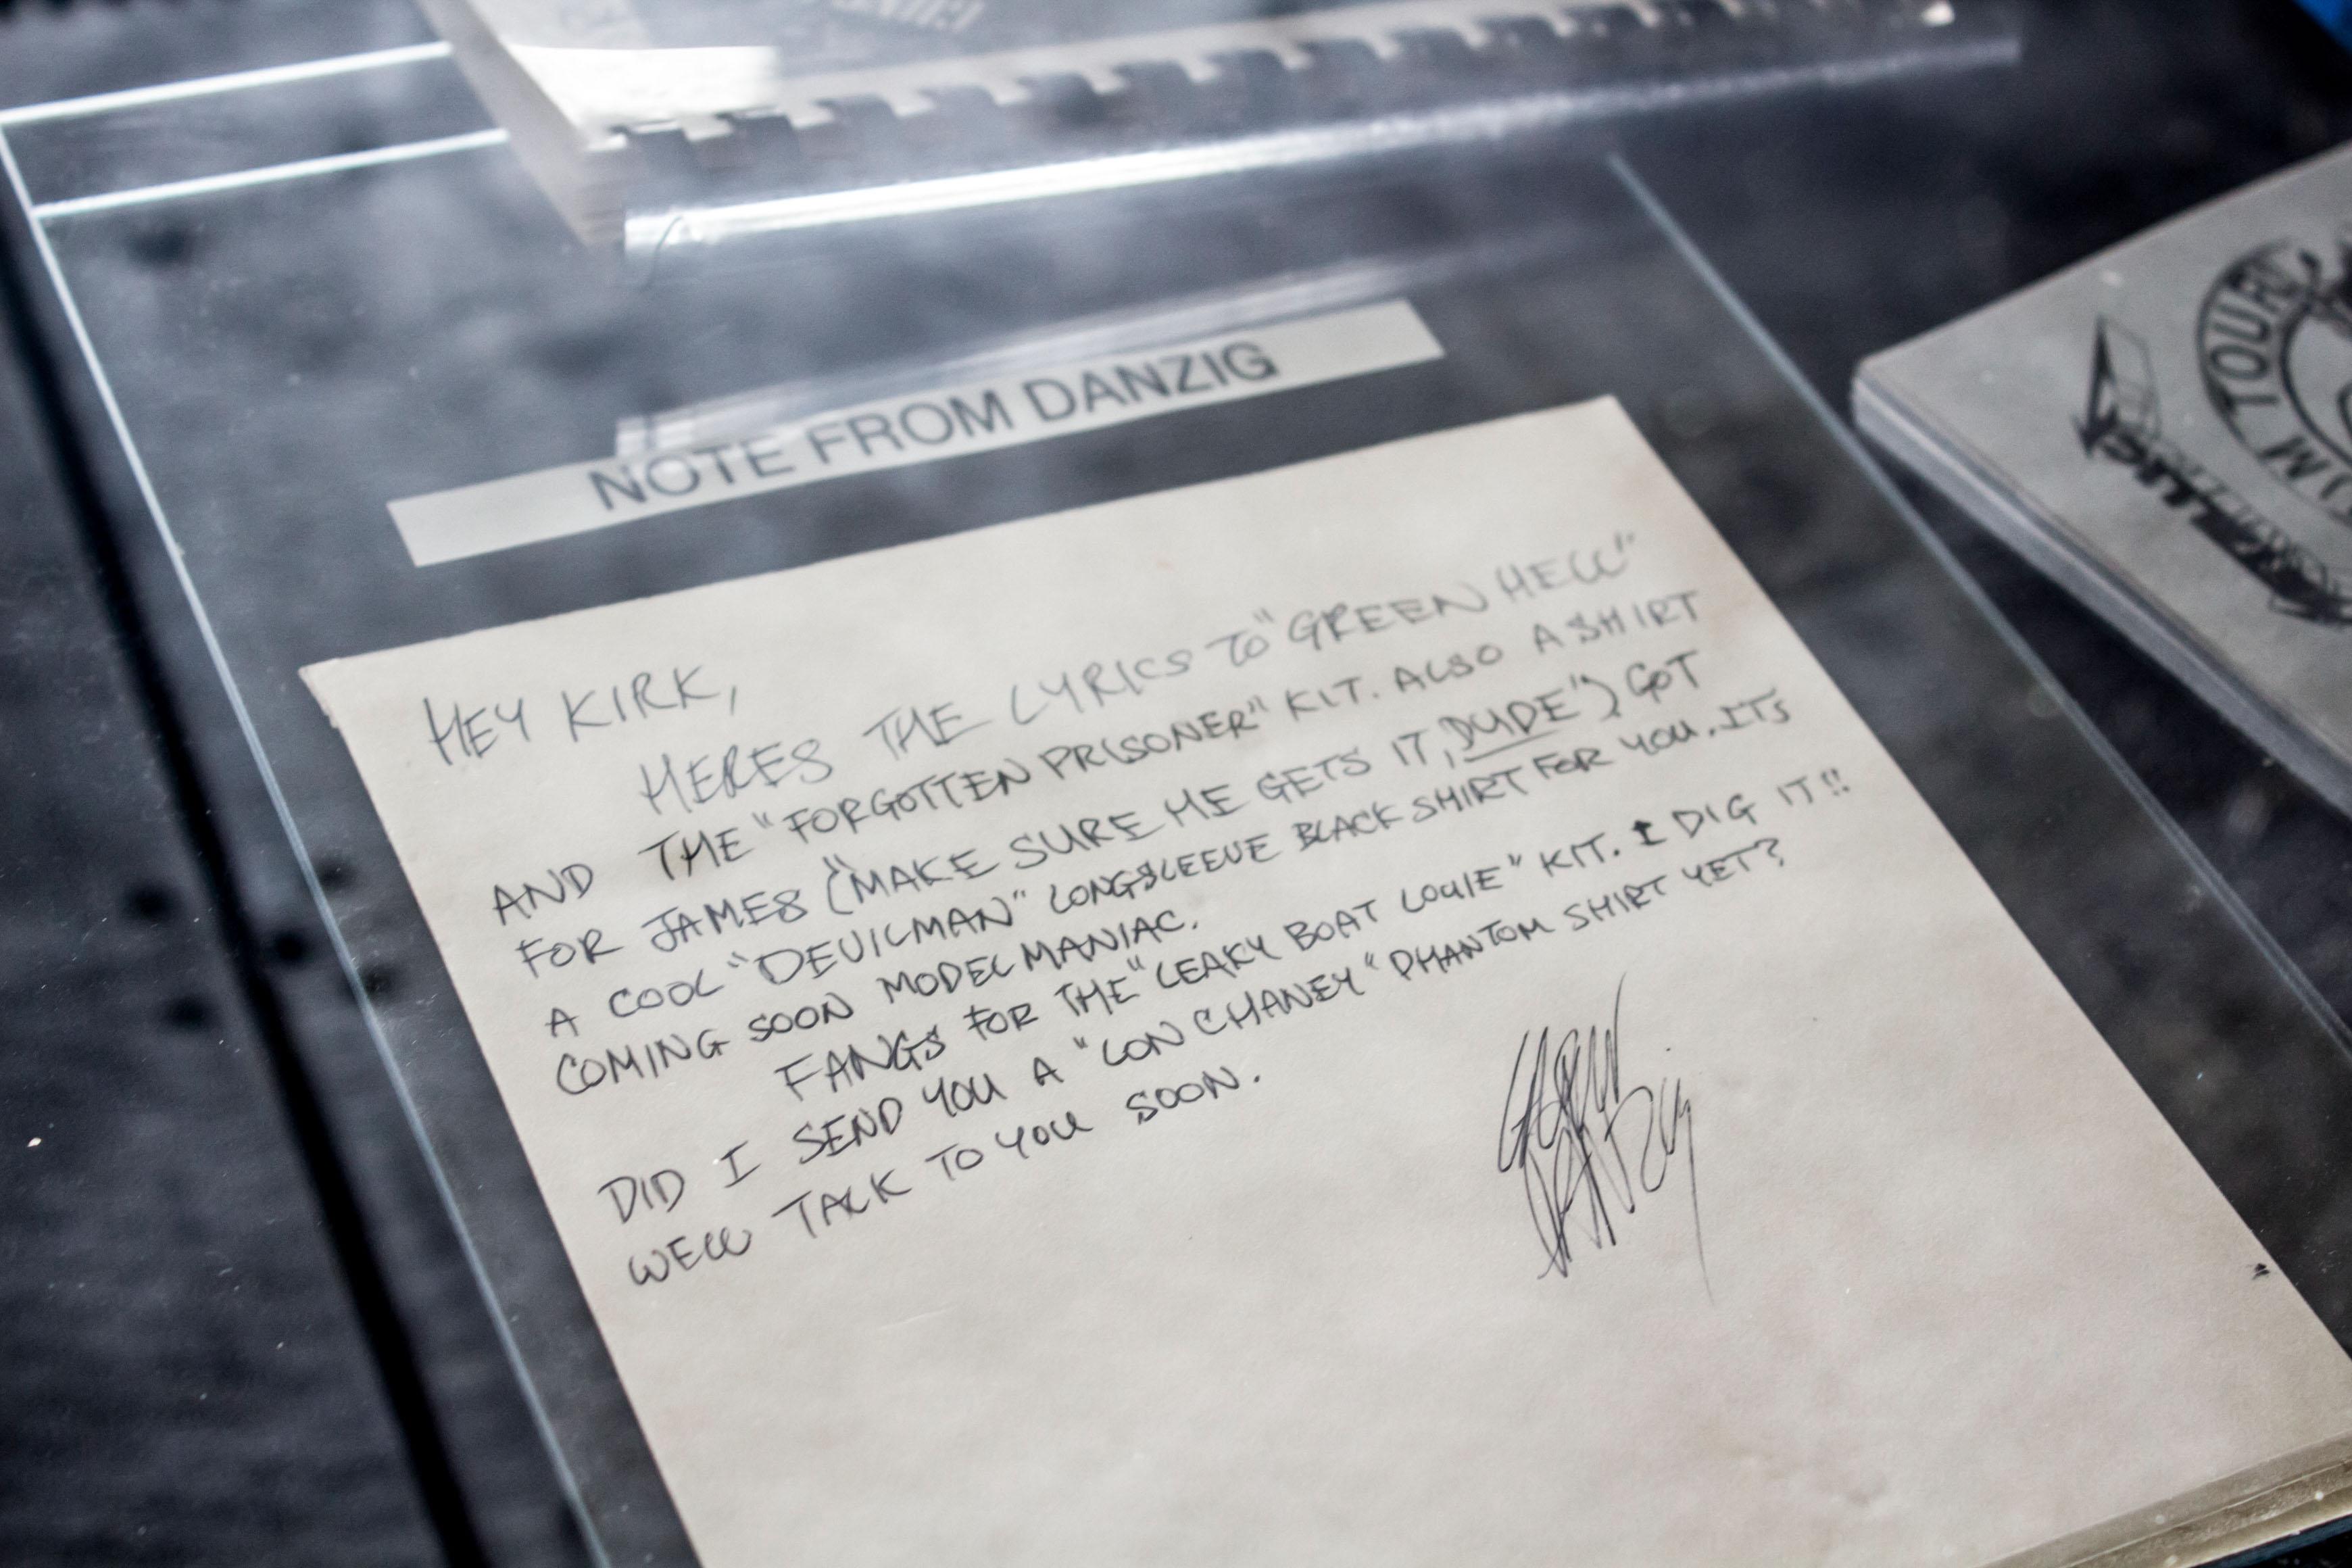 NOTE FROM DANZIG
HEY KIRK,
HERES THE LYRICS TO "GREEN HELL"
AND THE "FORGOTTEN PRISONER" KIT. ALSO A SHIRT
FOR JAMES ("MAKE SURE HE GETS IT, DUDE") GOT
A COOL "DEVILMAN" LONGSLEEVE BLACK SHIRT FOR YOU. ITS
COMING SOON MODEL MANIAC.
FANGS FOR THE "LEAKY BOAT LOUIE" KIT. I DIG IT!!
DID I SEND YOU A "LON CHANEY" PHANTOM SHIRT YET?
WELL TALK TO YOU SOON.